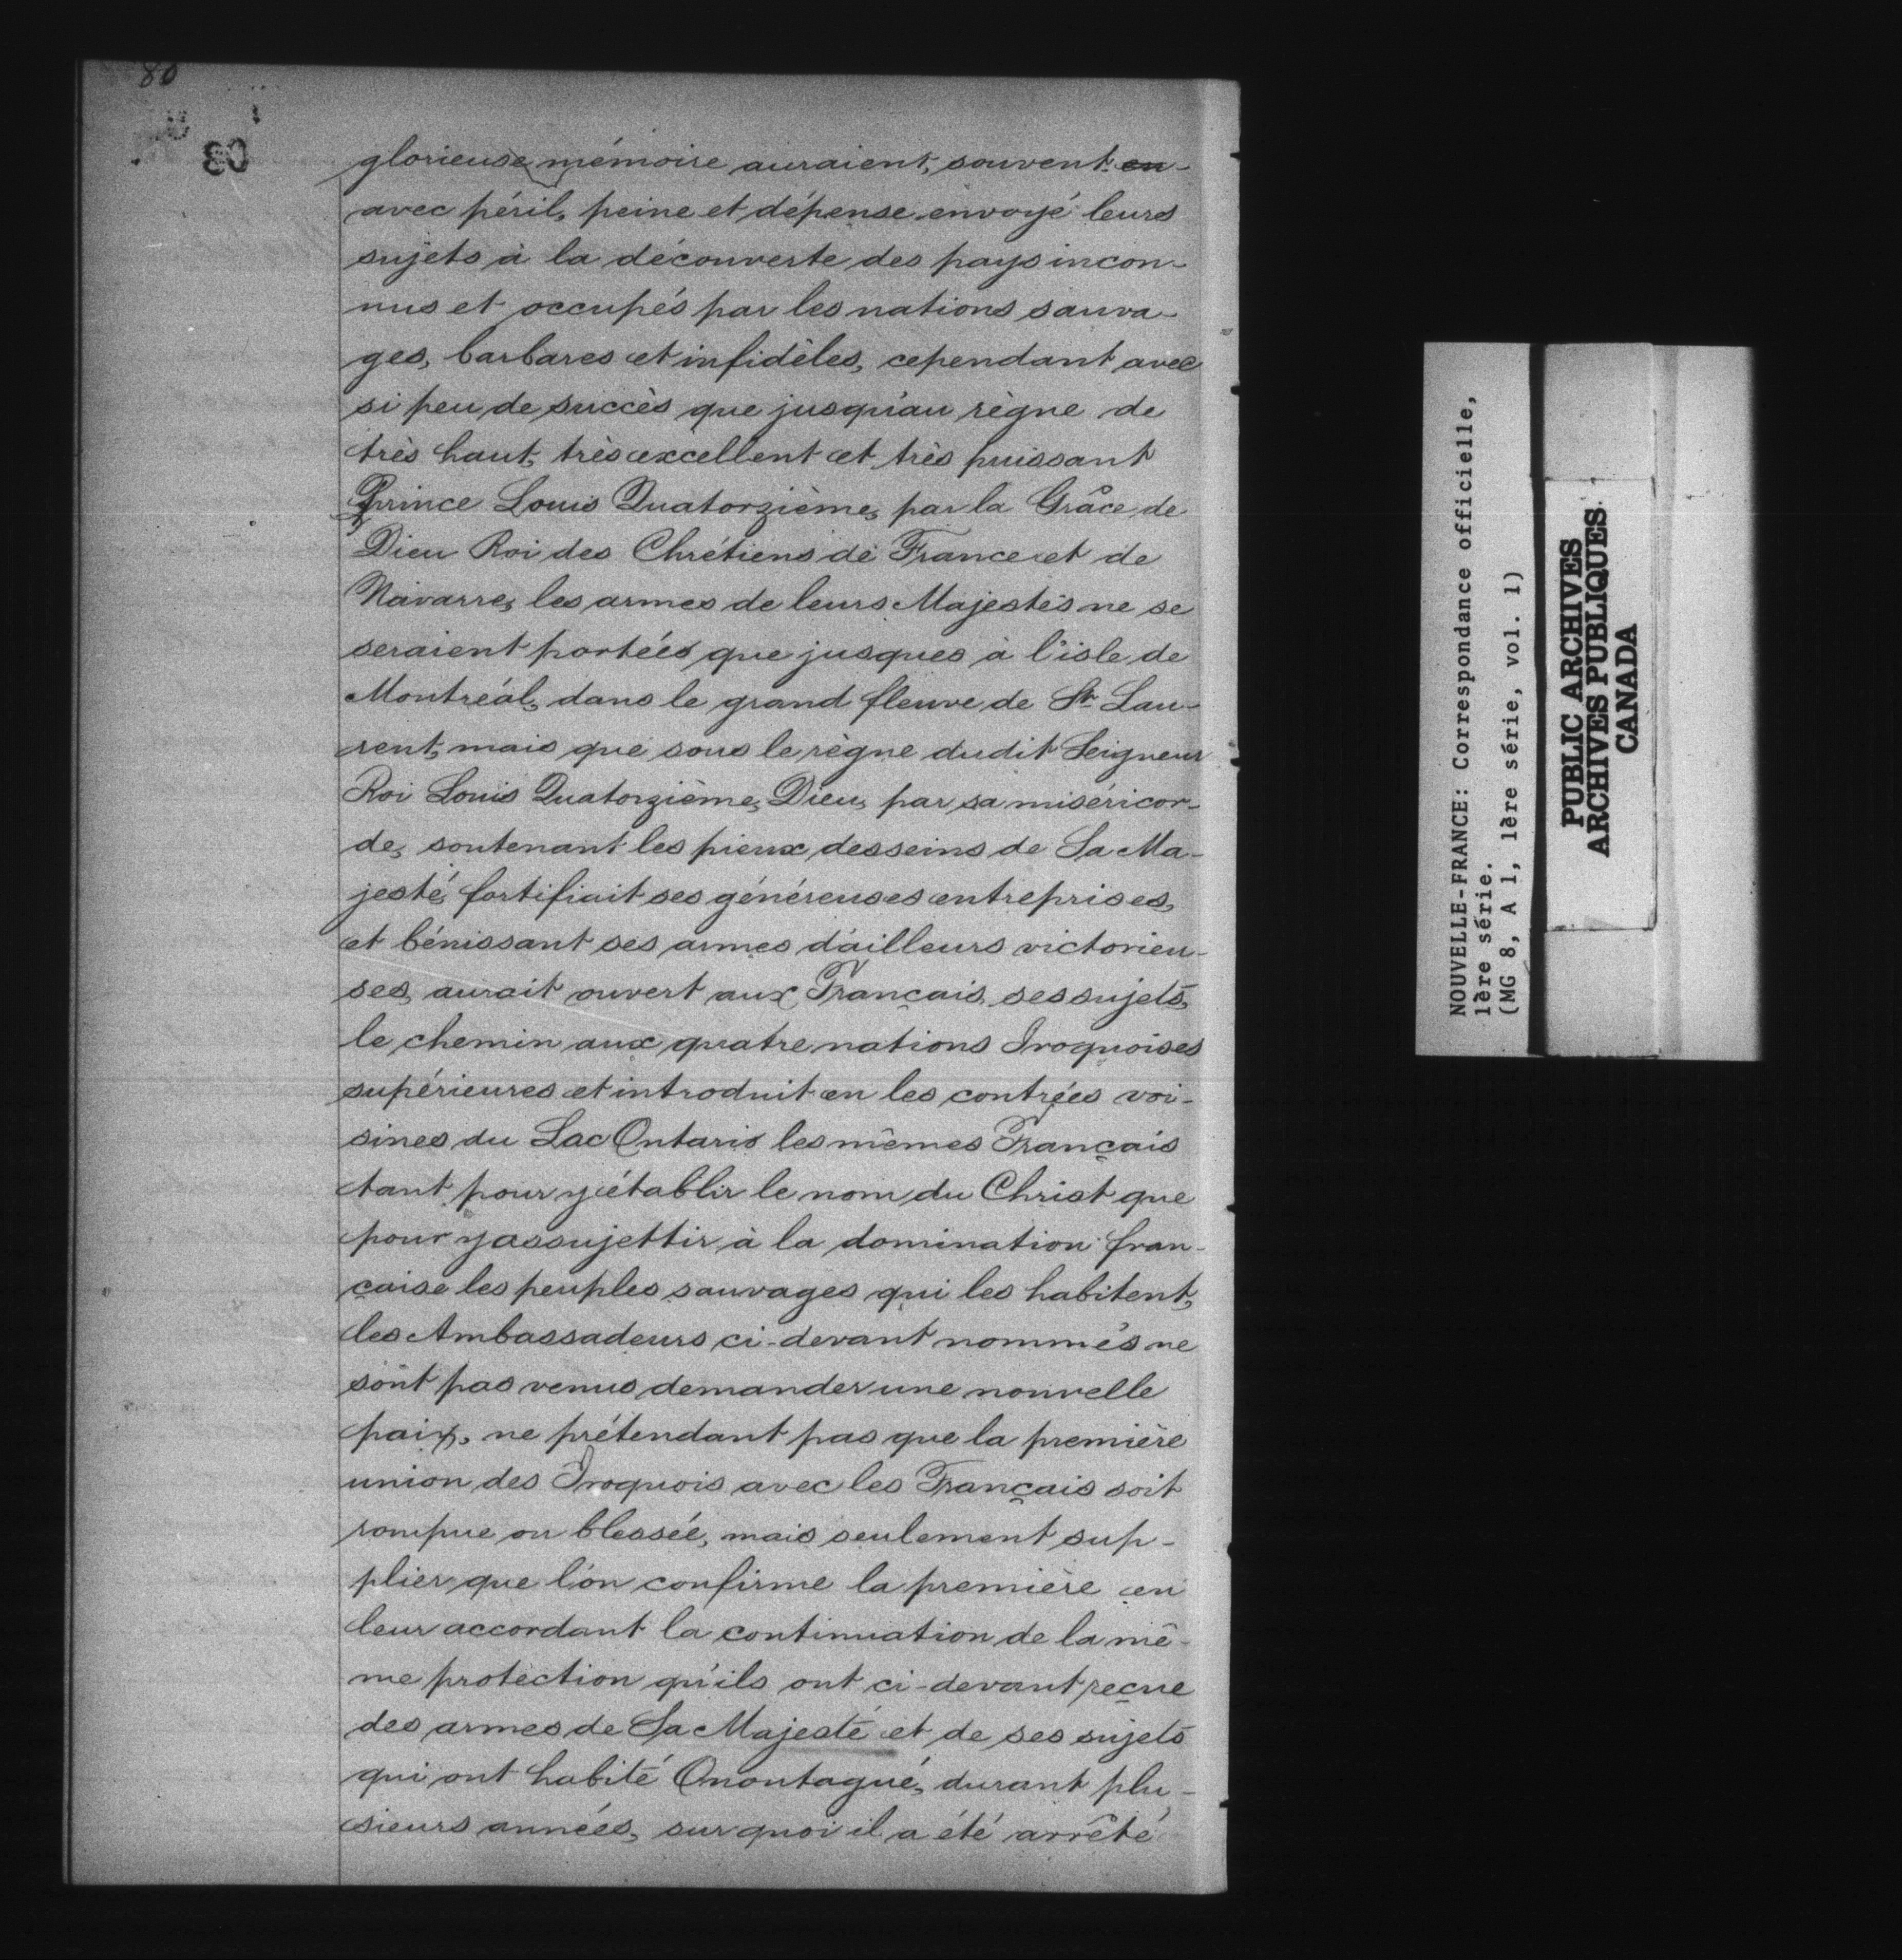 80
glorieuse mémoire auraient, souvent en
avec péril, peine et dépense envoyé leurs
sujets à la découverte des pays incon-
nus et occupés par les nations sauva-
ges, barbares et infidèles, cependant avec
si peu de succès que jusqu'au règne de
très haut, très excellent et très puissant
Prince Louis Quatorzième, par la Grâce de
Dieu Roi des Chrétiens de France et de
Navarre, les armes de leurs Majestés ne se
seraient portées que jusques à l'isle de
Montréal, dans le grand fleuve de St. Lau-
rent, mais que sous le règne dudit Seigneur
Roi Louis Quatorzième, Dieu, par sa miséricor-
de, soutenant les pieux desseins de Sa Ma-
jesté, fortifiait ses généreuses entreprises,
et bénissant ses armes d'ailleurs victorieu-
ses, aurait ouvert aux Français, ses sujets,
le chemin aux quatre nations Iroquoises
supérieures et introduit en les contrées voi-
sines du Lac Ontario les mêmes Français
tant pour y établir le nom du Christ que
pour y assujettir à la domination fran-
çaise les peuples sauvages qui les habitent,
les Ambassadeurs ci-devant nommés ne
sont pas venus demander une nouvelle
paix, ne prétendant pas que la première
union des Iroquois avec les Français soit
rompue ou blessée, mais seulement sup-
plier que l'on confirme la première en
leur accordant la continuation de la mê-
me protection qu'ils ont ci-devant reçue
des armes de Sa Majesté et de ses sujets
qui ont habité Onontagué, durant plu-
sieurs années, sur quoi il a été arrêté
NOUVELLE-FRANCE: Correspondance officielle,
1ère série.
(MG 8, A 1, 1ère série, vol. 1)
PUBLIC ARCHIVES
ARCHIVES PUBLIQUES
CANADA